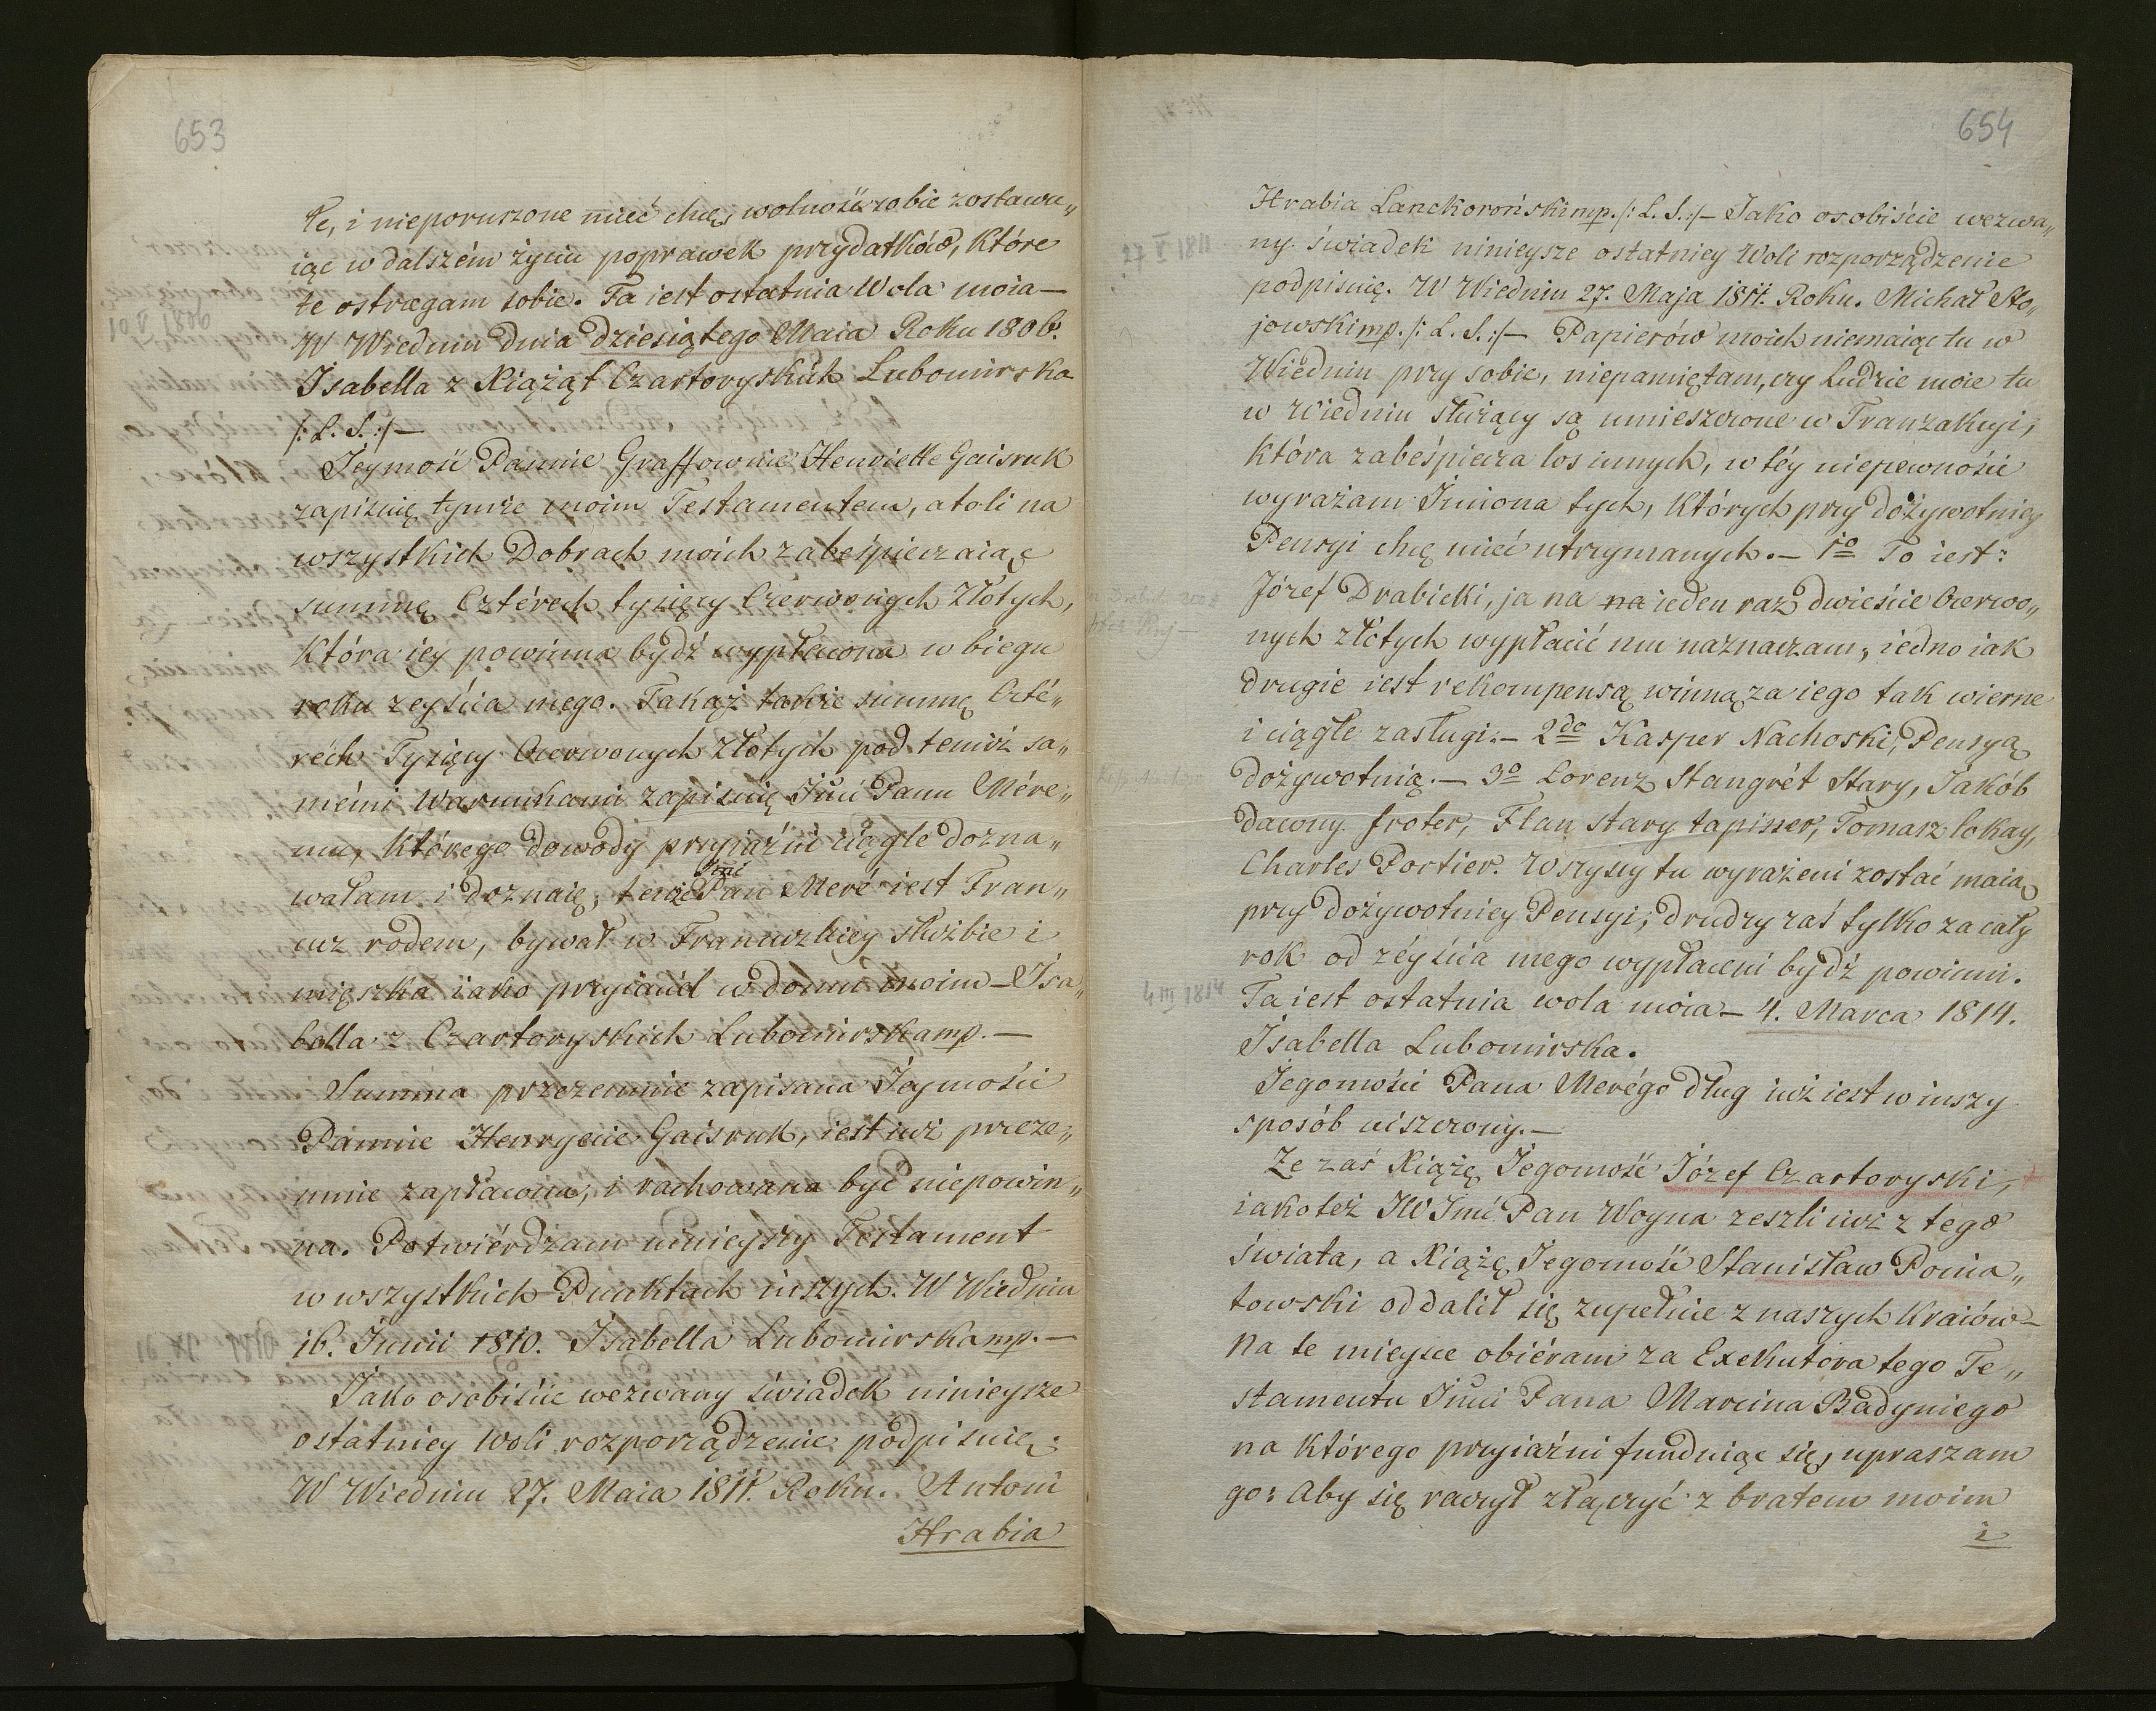 653
łe, i nieporuszone mieć chcę, wolność sobie zostawu„
iąc w dalszém życiu poprawek przydatków, które
te ostrzegam sobie. Ta iest ostatnia Wola moia —
W Wiedniu Dnia dziesiątego Maia Roku 1806.
10 V 1806
Isabella z Xiążąt Czartoryskich Lubomirska
/: L. S. :/ —
Jeymość Pannie Graffownie Henriette Gaisruk
zapisuię tymże moim Testamentem, a to li na
wszystkich Dobrach moich zabeśpieczaiąc
summę Cztérech tysięcy Czerwonych Złotych,
która iey powinna bydź wypłacona w biegu
roku zeyścia mego. Takąż także summę Czté„
réch Tysięcy Czerwonych Złotych pod temiż sa„
mémi Warunkami zapisuię Jmci Panu Mére„
mu, którego dowody przyiaźni ciągle dozna„
wałam i doznaię; tenże Jmć Pan Meré iest Fran„
cuz rodem, bywał w Francuzkiey służbie i
mięszka iako przyiaciel w domu moim — Isa„
bella z Czartoryskich Lubomirska mp. —
Summa przezemnie zapisana Jeymości
Pannie Henrycie Gaisruk, iest iuż przeze„
mnie zapłacona, i rachowana być niepowin„
na. Potwiérdzam ninieyszy Testament
w wszystkich Punktach inszych. W Wiedniu
16. Junii 1810. Isabella Lubomirska mp. —
Jako osobiście wezwany świadek ninieysze
ostatniey Woli rozporządzenie podpisuię.
W Wiedniu 27. Maia 1811. Roku. Antoni
Hrabia
654
Hrabia Lanckoroński mp. /: L. S. :/ — Jako osobiście wezwa„
ny świadek ninieysze ostatniey Woli rozporządzenie
27 V 1811
podpisuię. W Wiedniu 27. Maja 1811. Roku. Michał Sto„
jowski mp. /: L. S. :/ — Papierów moich niemaiąc tu w
Wiedniu przy sobie, niepamiętam, czy Ludzie moie tu
w Wiedniu służący są umieszczone w Tranzakcyi,
która zabeśpiecza los innych, w téy niepewności
wyrażam Imiona tych, których przy dożywotniey
Pensyi chcę mieć utrzymanych. — 1o To iest:
Józef Drabicki, ja na na ieden raz dwieście Czerwo„
nych złótych wypłacić mu naznaczam, iedno iak
drugie iest rekompensą winną za iego tak wierne
i ciągłe zasługi. — 2do Kasper Nachoski, Pensyą
dożywotnią. — 3o Lorenz Stangrét Stary, Jakób
dawny froter, Flan stary tapiser, Tomasz lokay,
Charles Portier. Wszyscy tu wyrażeni zostać maią
przy Dożywotniey Pensyi; drudzy zaś tylko za cały
rok od zéyścia mego wypłaceni bydź powinni.
4 III 1814
Ta iest ostatnia wola móia — 4. Marca 1814.
Isabella Lubomirska.
Jegomości Pana Merégo dług iuż iest w inszy
sposób uiszczony. —
Ze zaś Xiążę Jegomość Józef Czartoryski,
iakoteż JW Jmć Pan Woyna zeszli iuż z tego
świata, a Xiążę Jegomość Stanisław Ponia„
towski oddalił się zupełnie z naszych kraiów —
Na te mieysce obiéram za Exekutora tego Te„
stamentu Jmci Pana Marcina Badyniego
na którego przyiaźni funduiąc się, upraszam
go: Aby się raczył złączyć z bratem moim
i